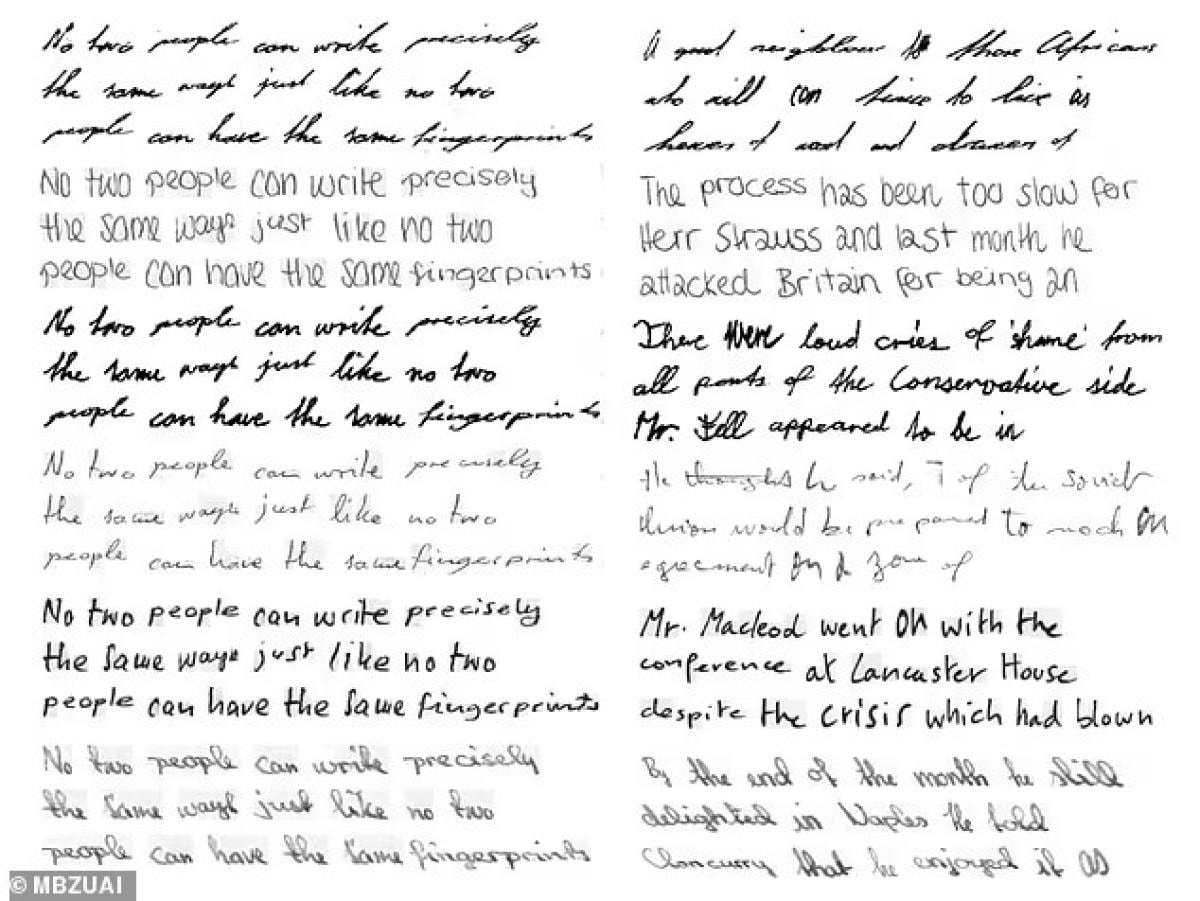 No two people can write precisely
the same ways just like no two
people can have the same fingerprints
No two people can write precisely
the same ways just like no two
people can have the same fingerprints
No two people can write precisely
the same ways just like no two
people can have the same fingerprints
No two people can write precisely
the same ways just like no two
people can have the same fingerprints
No two people can write precisely
the same ways just like no two
people can have the same fingerprints
No two people can write precisely
the same ways just like no two
people can have the same fingerprints
A good neighbour to those Africans
who will to live as
hewers of wood and drawers of
The process has been too slow for
Herr Strauss and last month he
attacked Britain for being an
There were loud cries of 'shame' from
all parts of the Conservative side
Mr. Fell appeared to be in
He thought he said, of the Soviet
Union would be prepared to reach an
agreement on a zone of
Mr. Macleod went on with the
conference at Lancaster House
despite the crisis which had blown
By the end of the month he still
delighted in Naples He told
Cloncurry that he enjoyed it as
© MBZUAI